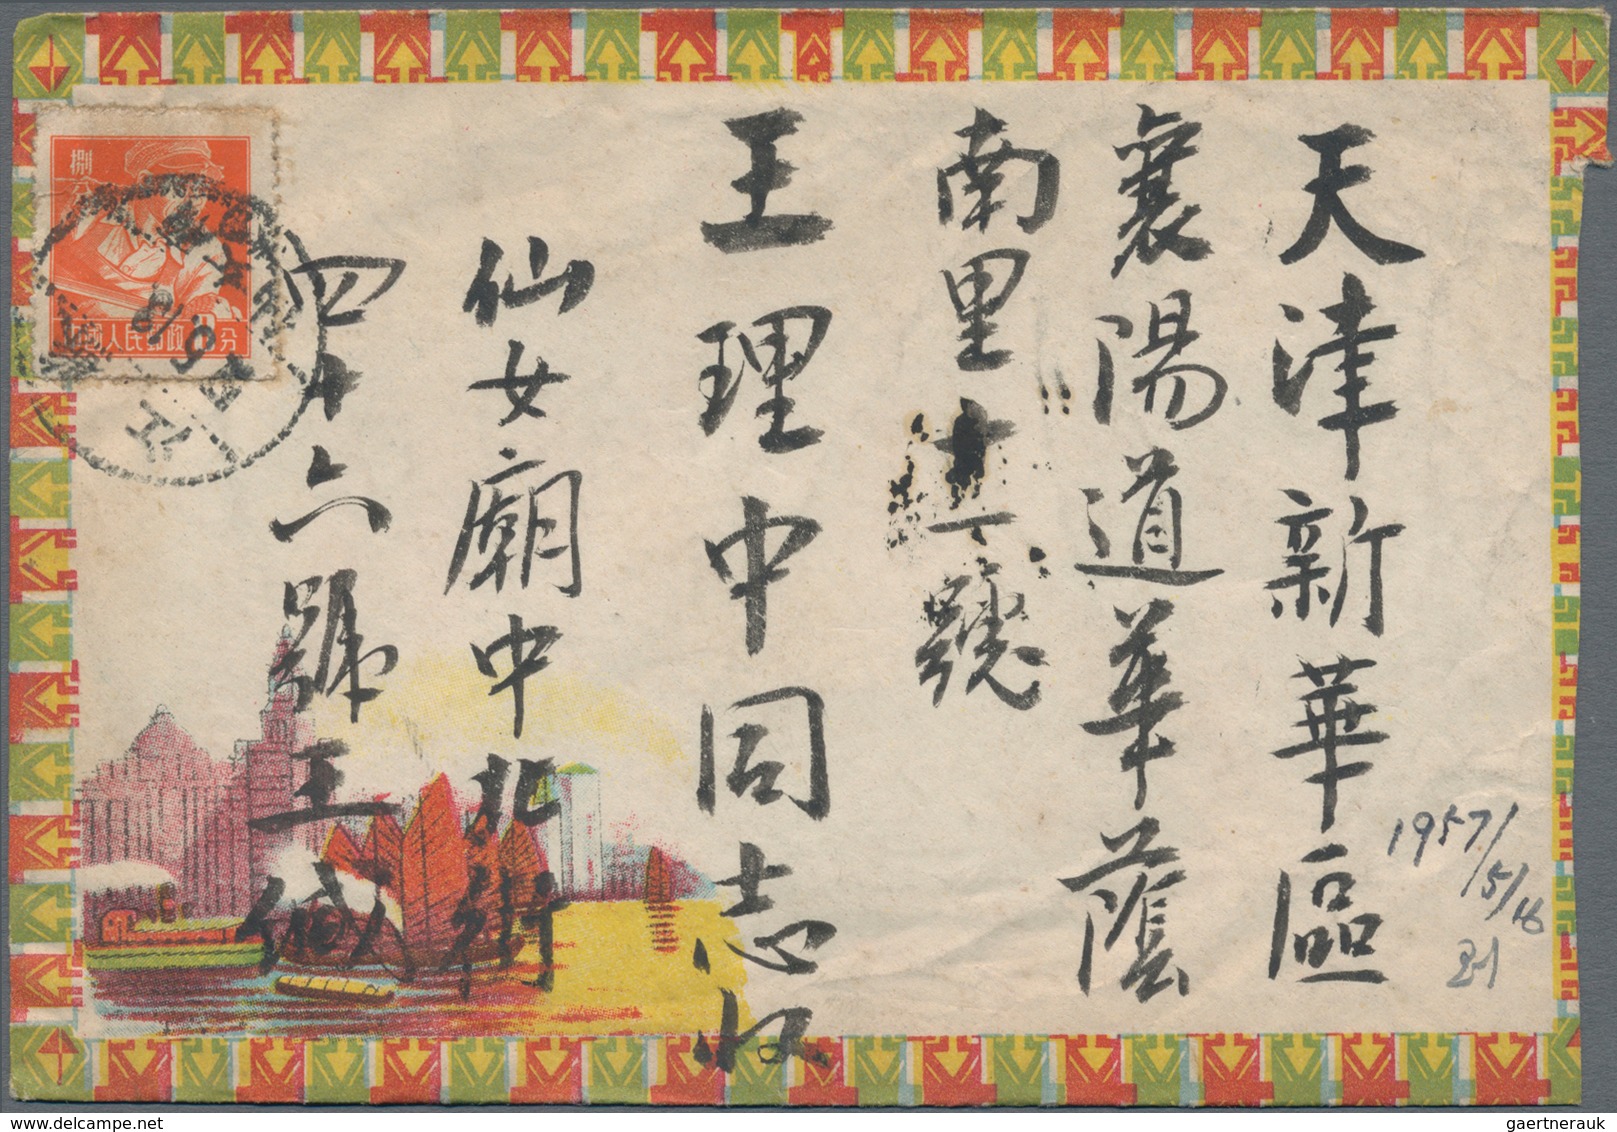 天津新華區
襄陽道華蔭
南里十一號
王理中同志收
仙女廟中北街
四十六號王缄
捌分
國人民郵政
8分
江
1957/5/16
gaertnerauk